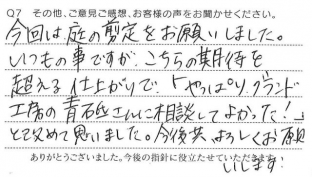 Q7 その他、ご意見ご感想、お客様の声をお聞かせください。
今回は庭の剪定をお願いしました。
いつもの事ですが、こちらの期待を
超える仕上がりで「やっぱり、グランド
工房の青砥さんに相談してよかった!」
と改めて思いました。今後共、よろしくお願
ありがとうございました。今後の指針に役立たせていただきます。
いします!